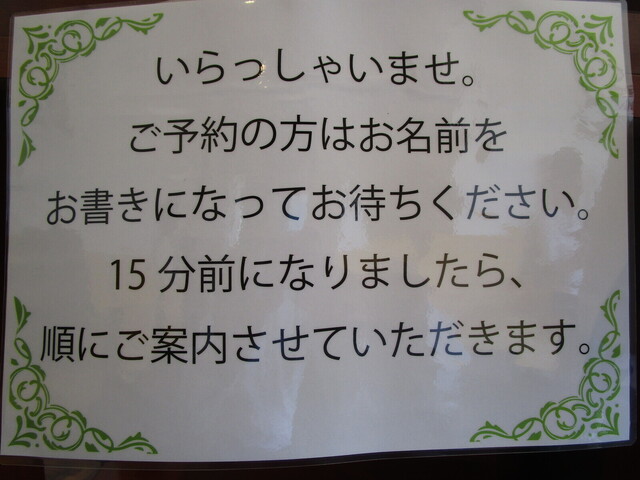 いらっしゃいませ。
ご予約の方はお名前を
お書きになってお待ちください。
15分前になりましたら、
順にご案内させていただきます。